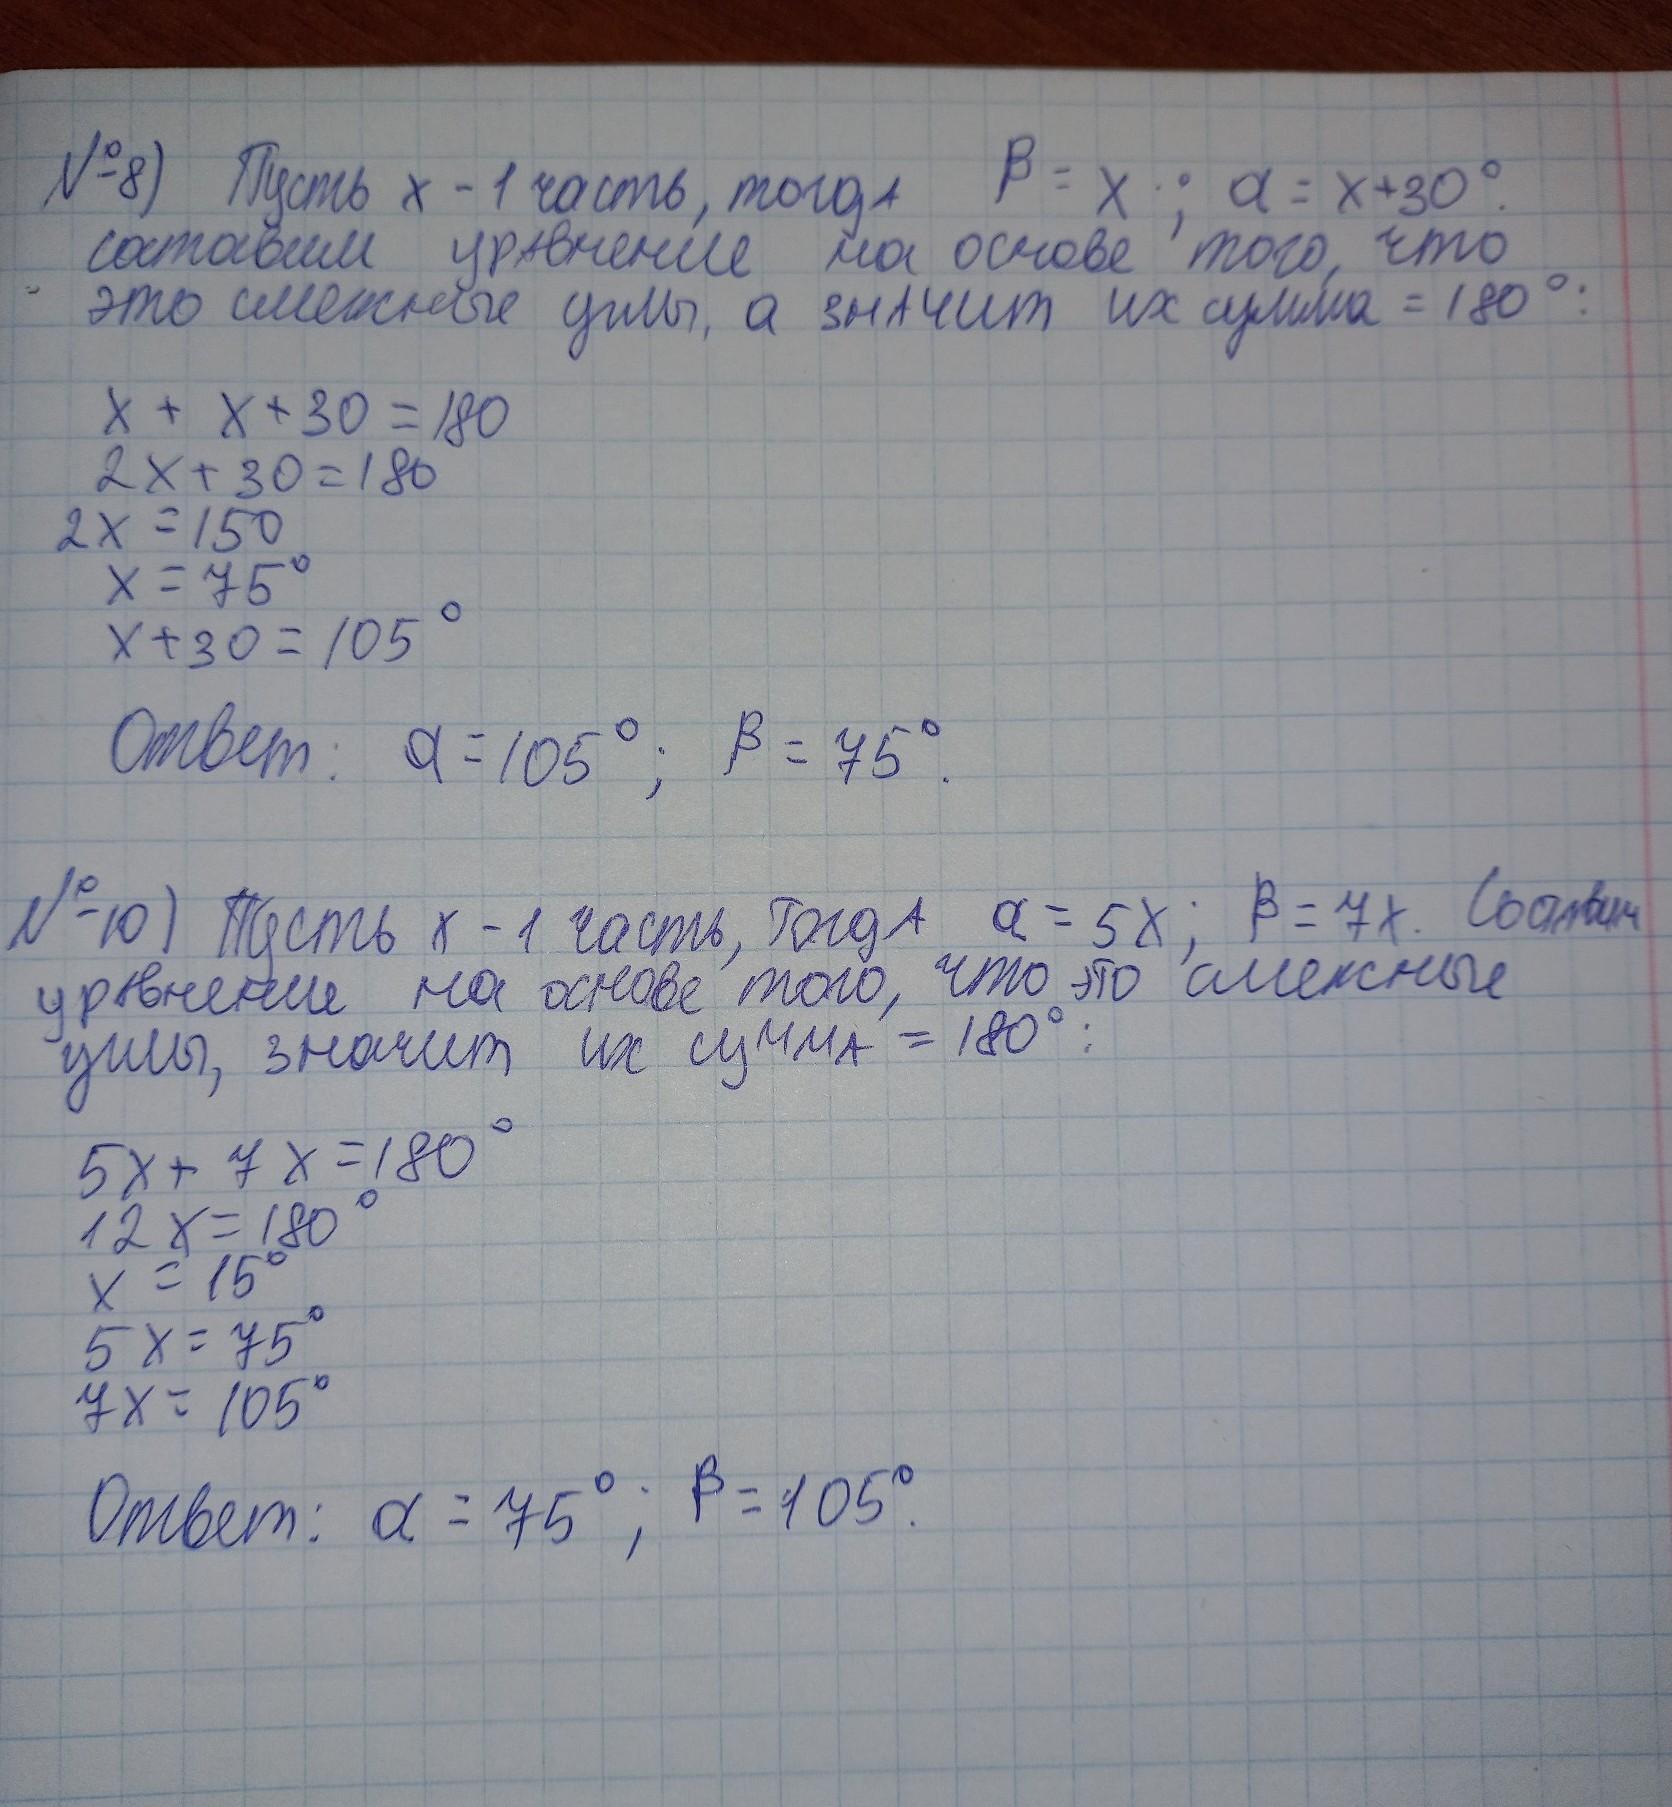 №8) Пусть x - 1 часть, тогда β = x°; α = x+30°.
составим уравнение на основе того, что
это смежные углы, а значит их сумма = 180°:
x + x+30 = 180
2x+30=180
2x = 150
x = 75°
x+30 = 105°
Ответ: α = 105°; β = 75°.
№10) Пусть x - 1 часть, тогда α = 5x; β = 7x. Составим
уравнение на основе того, что это смежные
углы, значит их сумма = 180°:
5x+ 7x=180°
12x=180°
x = 15°
5x= 75°
7x= 105°
Ответ: α = 75°; β = 105°.